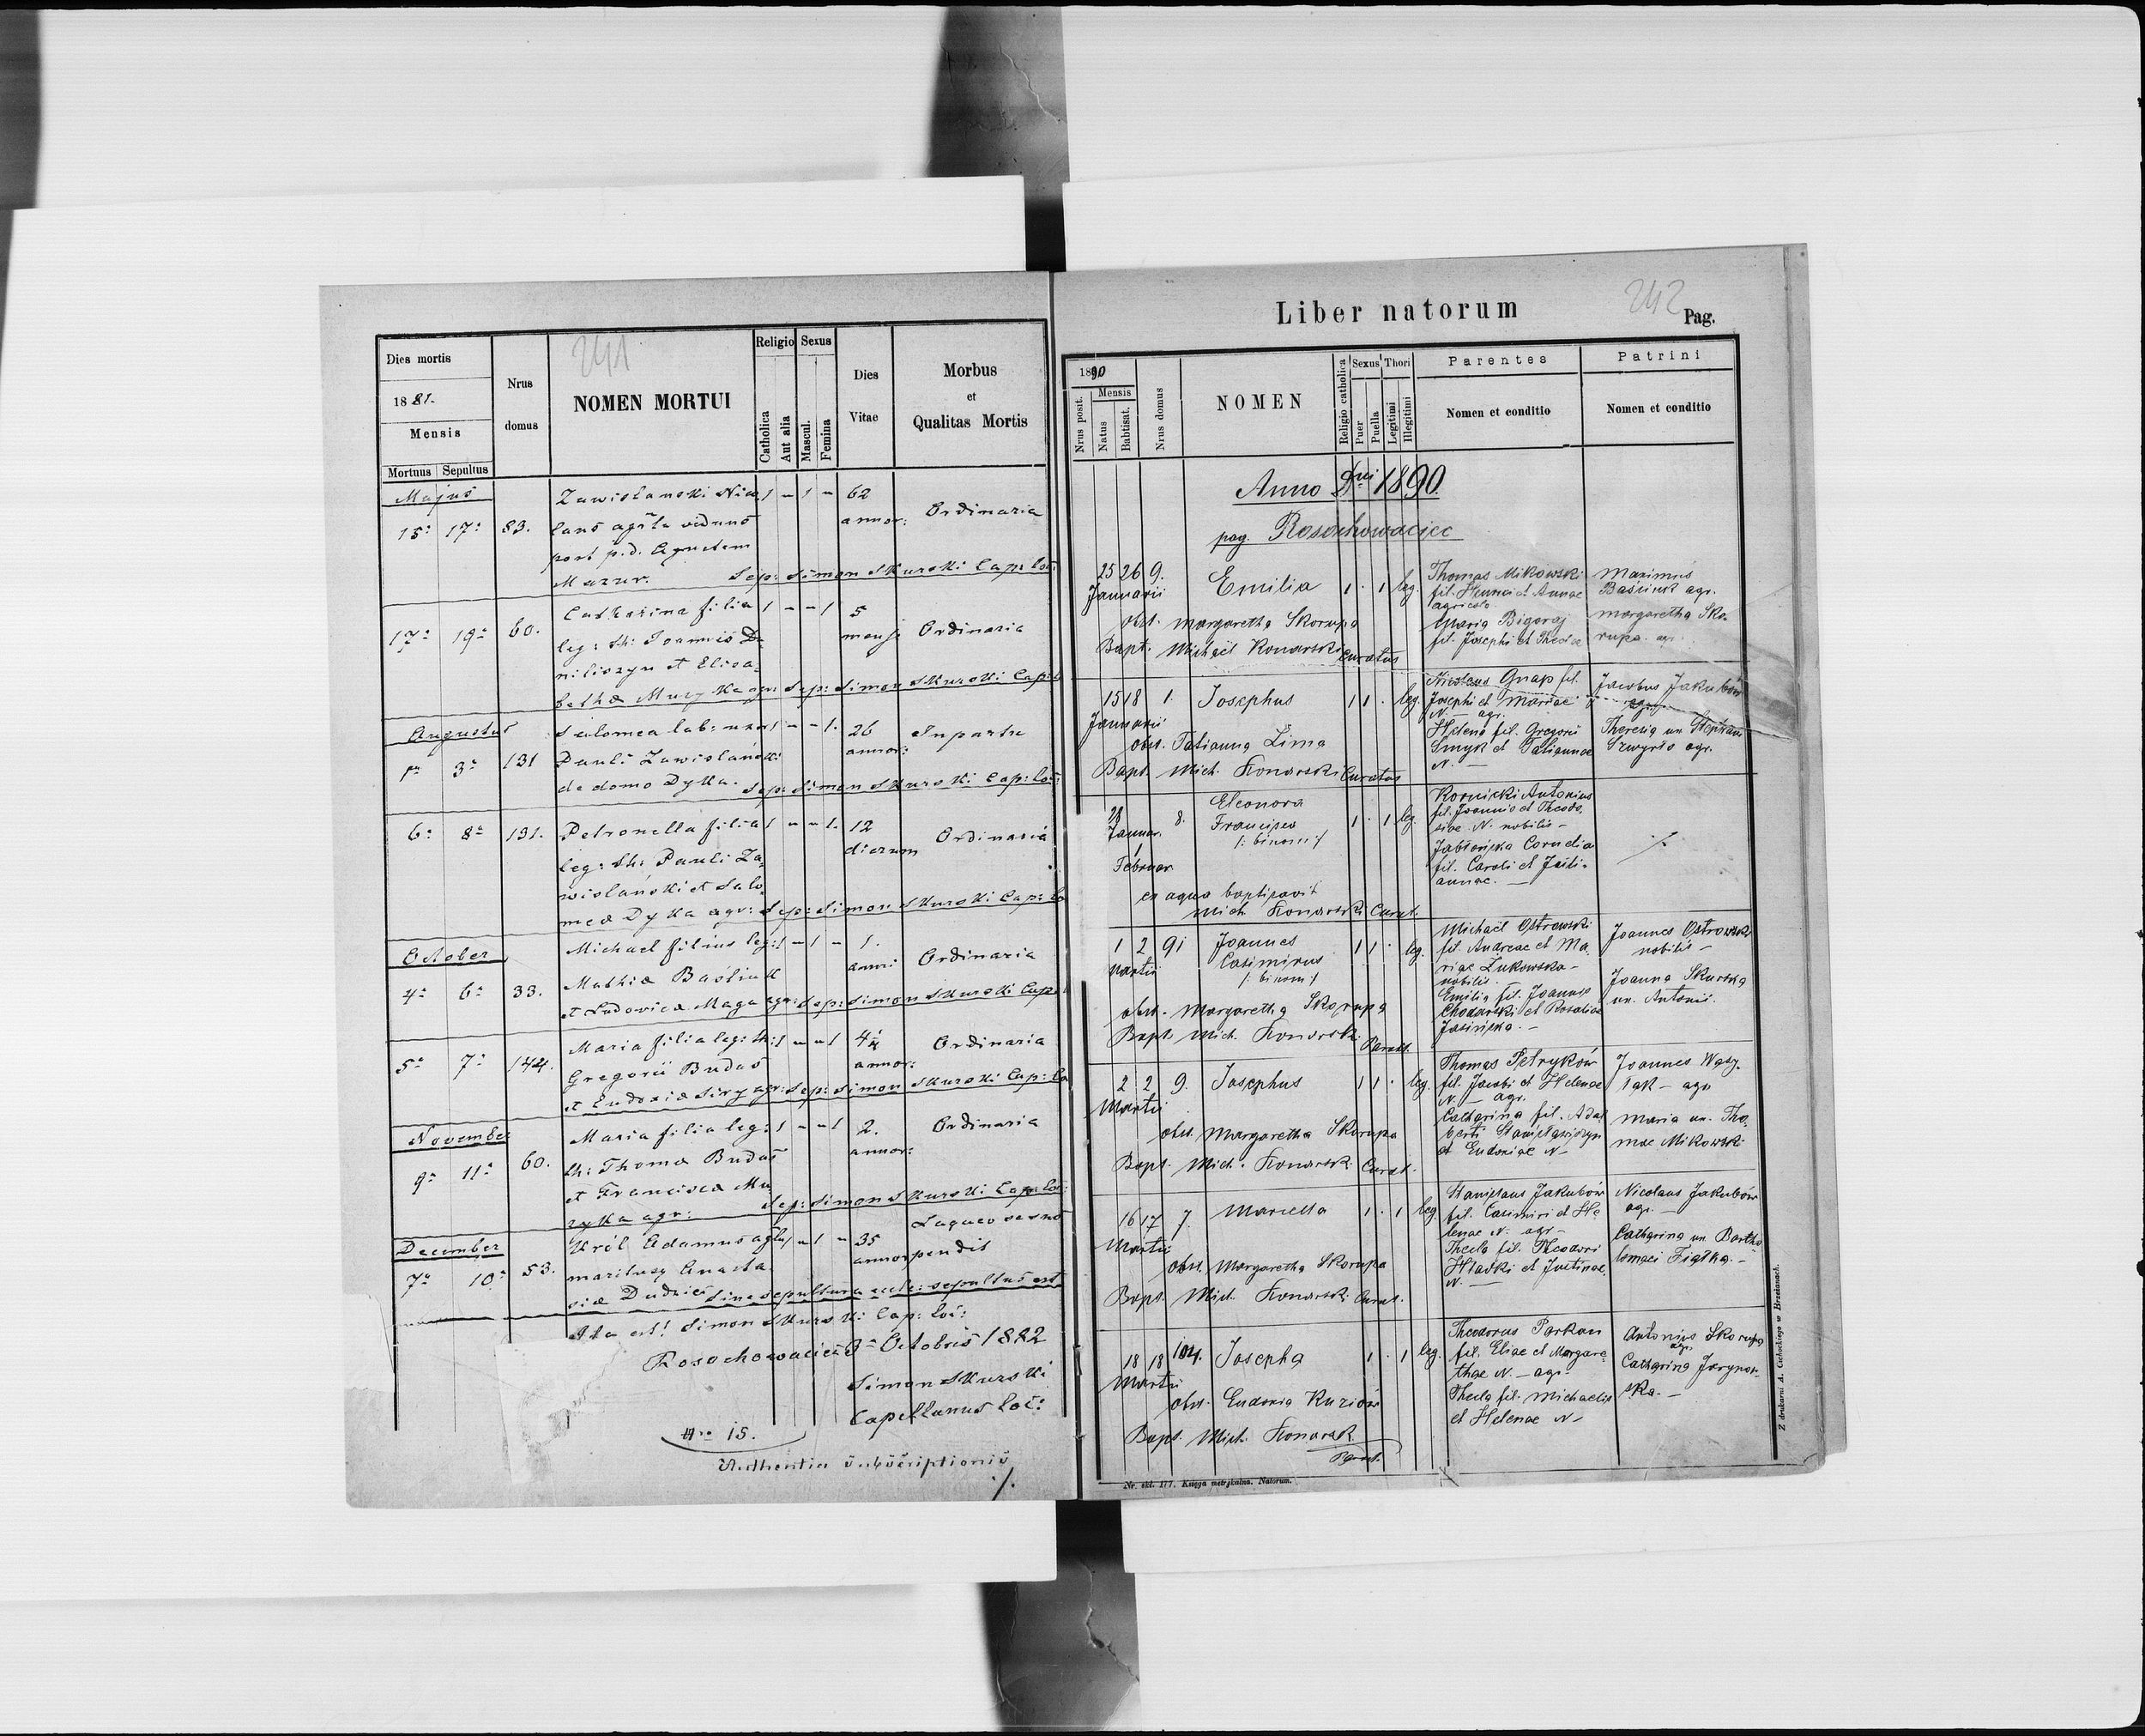 241
Dies mortis
1881.
Mensis
Mortuus Sepultus
Nrus domus
NOMEN MORTUI
Religio
Catholica
Aut alia
Sexus
Mascul.
Femina
Dies Vitae
Morbus
et
Qualitas Mortis
Majus
15 17 83. Zawislanski Nico 1 - 1 - 62 annor: Ordinaria
laus viduus
post p. d.
Mazur. Sep: Simon Skurski Cap: loc:
17 19 60. Catharina filia 1 - - 1 5 Ordinaria
leg: th: Joannis Da
niliszyn et Elisa
bethæ Muzyka agr: Sep: Simon Skurski Cap:
Augustus
1 3 131 Salomea lab: uxor 1 - - 1. 26 annor: In partu
Pauli Zawislański
de domo Dyka. Sep: Simon Skurski Cap: loc:
6 8 131. Petronella filia 1 - - 1. 12 dierum Ordinaria
leg: th: Pauli Za
wislański et Salo
meæ Dyka agr: Sep: Simon Skurski Cap:
October
4 6 33. Michael filius leg: 1 - 1 - 1. anni Ordinaria
Mathiæ Basliuk
et Ludovicæ Maga agr: Sep: Simon Skurski Cap:
5 7 144. Maria filia leg: th: 1 - - 1 annor: Ordinaria
Gregorii Budas
et Eudoxiæ agr: Sep: Simon Skurski Cap:
November
9 11 60. Maria filia leg: 1 - - 1 2. annor: Ordinaria
th: Thomæ Budas
et Franciscæ Mu
zyka agr: Sep: Simon Skurski Cap: loc:
December
7 10 53. Król Adamus 1 - 1 - 35 annor Laqueo se sus
pendit
maritus Anasta
siæ Dudzicz Sine sepultura eccle: sepultus est
Ita est! Simon Skurski Cap: loc:
Rosochowaciec 3 Octobris 1882
Simon Skurski
Capellanus loc:
Nro 15.
Authentia subscriptionis
Liber natorum
242 Pag.
1890
Nrus posit.
Mensis
Natus
Babtisat.
Nrus domus
NOMEN
Religio catholica
Sexus
Puer
Puella
Thori
Legitimi
Illegitimi
Parentes
Nomen et conditio
Patrini
Nomen et conditio
Anno Dni 1890.
pag. Rosochowaciec
25 26 9. Januarii Emilia 1 · 1 leg.
Thomas Mikowski
fil. et Annae
agricola
Maria Bigoraj
fil. Josephi et Theclae
Maximus
Basiuk agr.
Margaretha Sko
rupa agr.
obst. Margaretha Skorupa
Bapt. Michaël Konarski Curatus
15 18 1. Januarii Josephus 1 1 · leg.
Nicolaus Gnap fil.
Josephi et Mariae
N. — agr.
Helena fil. Gregorii
Smyk et Tatiannae
N. —
Jacobus Jakubów
agr.
Theresia ux. Stephani
agr.
obst. Tatianna Lima
Bapt. Mich. Konarski Curatus
28 Januar. 1 Februar 8. Eleonora
Francisca
/: binom :/ 1 · 1 leg.
Kornicki Antonius
fil. Joannis et Theodo
siae N. nobilis —
Jabłońska Cornelia
fil. Caroli et Juli
annae. —
ex aqua baptisavit
Mich Konarski Curat.
1 2 91 Martii Joannes
Casimirus
/: binom :/ 1 1 · leg.
Michaël Ostrowski
fil. Andreae et Ma
riae Żukowska —
nobilis
Emilia fil. Joannis
Chodarski et Rosaliae
Jasińska. —
Joannes Ostrowski
nobilis —
Joanna Skurska
ux. Antonii.
obst. Margaretha Skorupa
Bapt. Mich. Konarski Curat.
2 2 9. Martii Josephus 1 1 · leg.
Thomas Petryków
fil. Jacobi et Helenae
N. — agr.
Catharina fil. Adal
berti
et Eudoxiae N —
Joannes Wasy
lak — agr
Maria ux. Tho
mae Mikowski
obst. Margaretha Skorupa
Bapt. Mich. Konarski Curat.
16 17 7. Martii Mariella 1 · 1 leg.
Stanislaus Jakubów
fil. Casimiri et He
lenae N. agr —
Thecla fil. Theodori
Hladki et Justinae
N. —
Nicolaus Jakubów
agr. —
Catharina ux. Bartho
lomaei Fiałka. —
obst. Margaretha Skorupa
Bapt. Mich. Konarski Curat.
18 18 104. Martii Josepha 1 · 1 leg.
Theodorus Parkan
fil. Eliae et Margare
thae N. — agr.
Thecla fil. Michaelis
et Helenae N —
Antonius Skorupa
agr.
Catharina Jaryno
ska. —
obst. Eudoxia Kuziów
Bapt. Mich. Konarski
Nr. skł. 177. Księga metrykalna. Natorum.
Z drukarni A. Cichockiego w Brzeżanach.